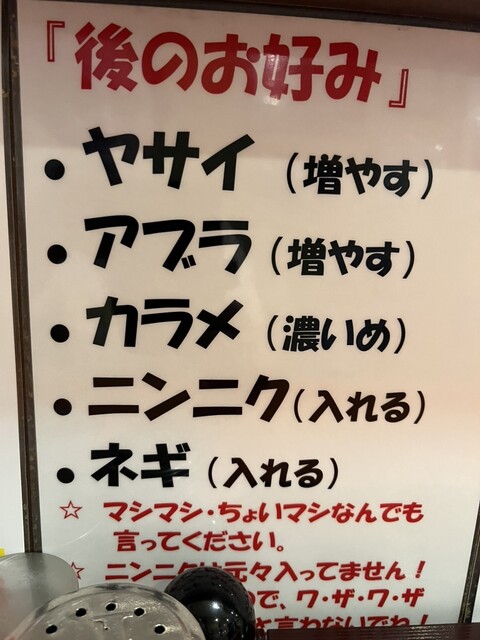 『後のお好み』
・ヤサイ（増やす）
・アブラ（増やす）
・カラメ（濃いめ）
・ニンニク（入れる）
・ネギ（入れる）
☆ マシマシ・ちょいマシなんでも
言ってください。
☆ ニンニクは元々入ってません！
ので、ワ・ザ・ワ・ザ
言わないでね！